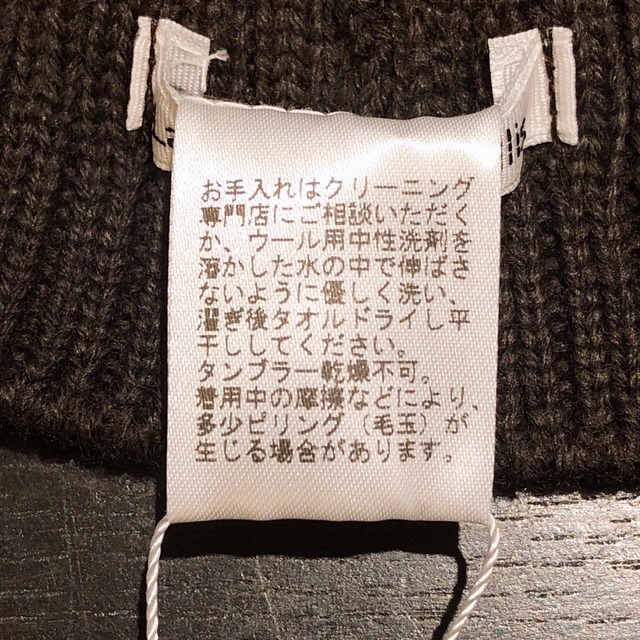 お手入れはクリーニング
専門店にご相談いただく
か、ウール用中性洗剤を
溶かした水の中で伸ばさ
ないように優しく洗い、
濯ぎ後タオルドライし平
干ししてください。
タンブラー乾燥不可。
着用中の摩擦などにより、
多少ピリング（毛玉）が
生じる場合があります。